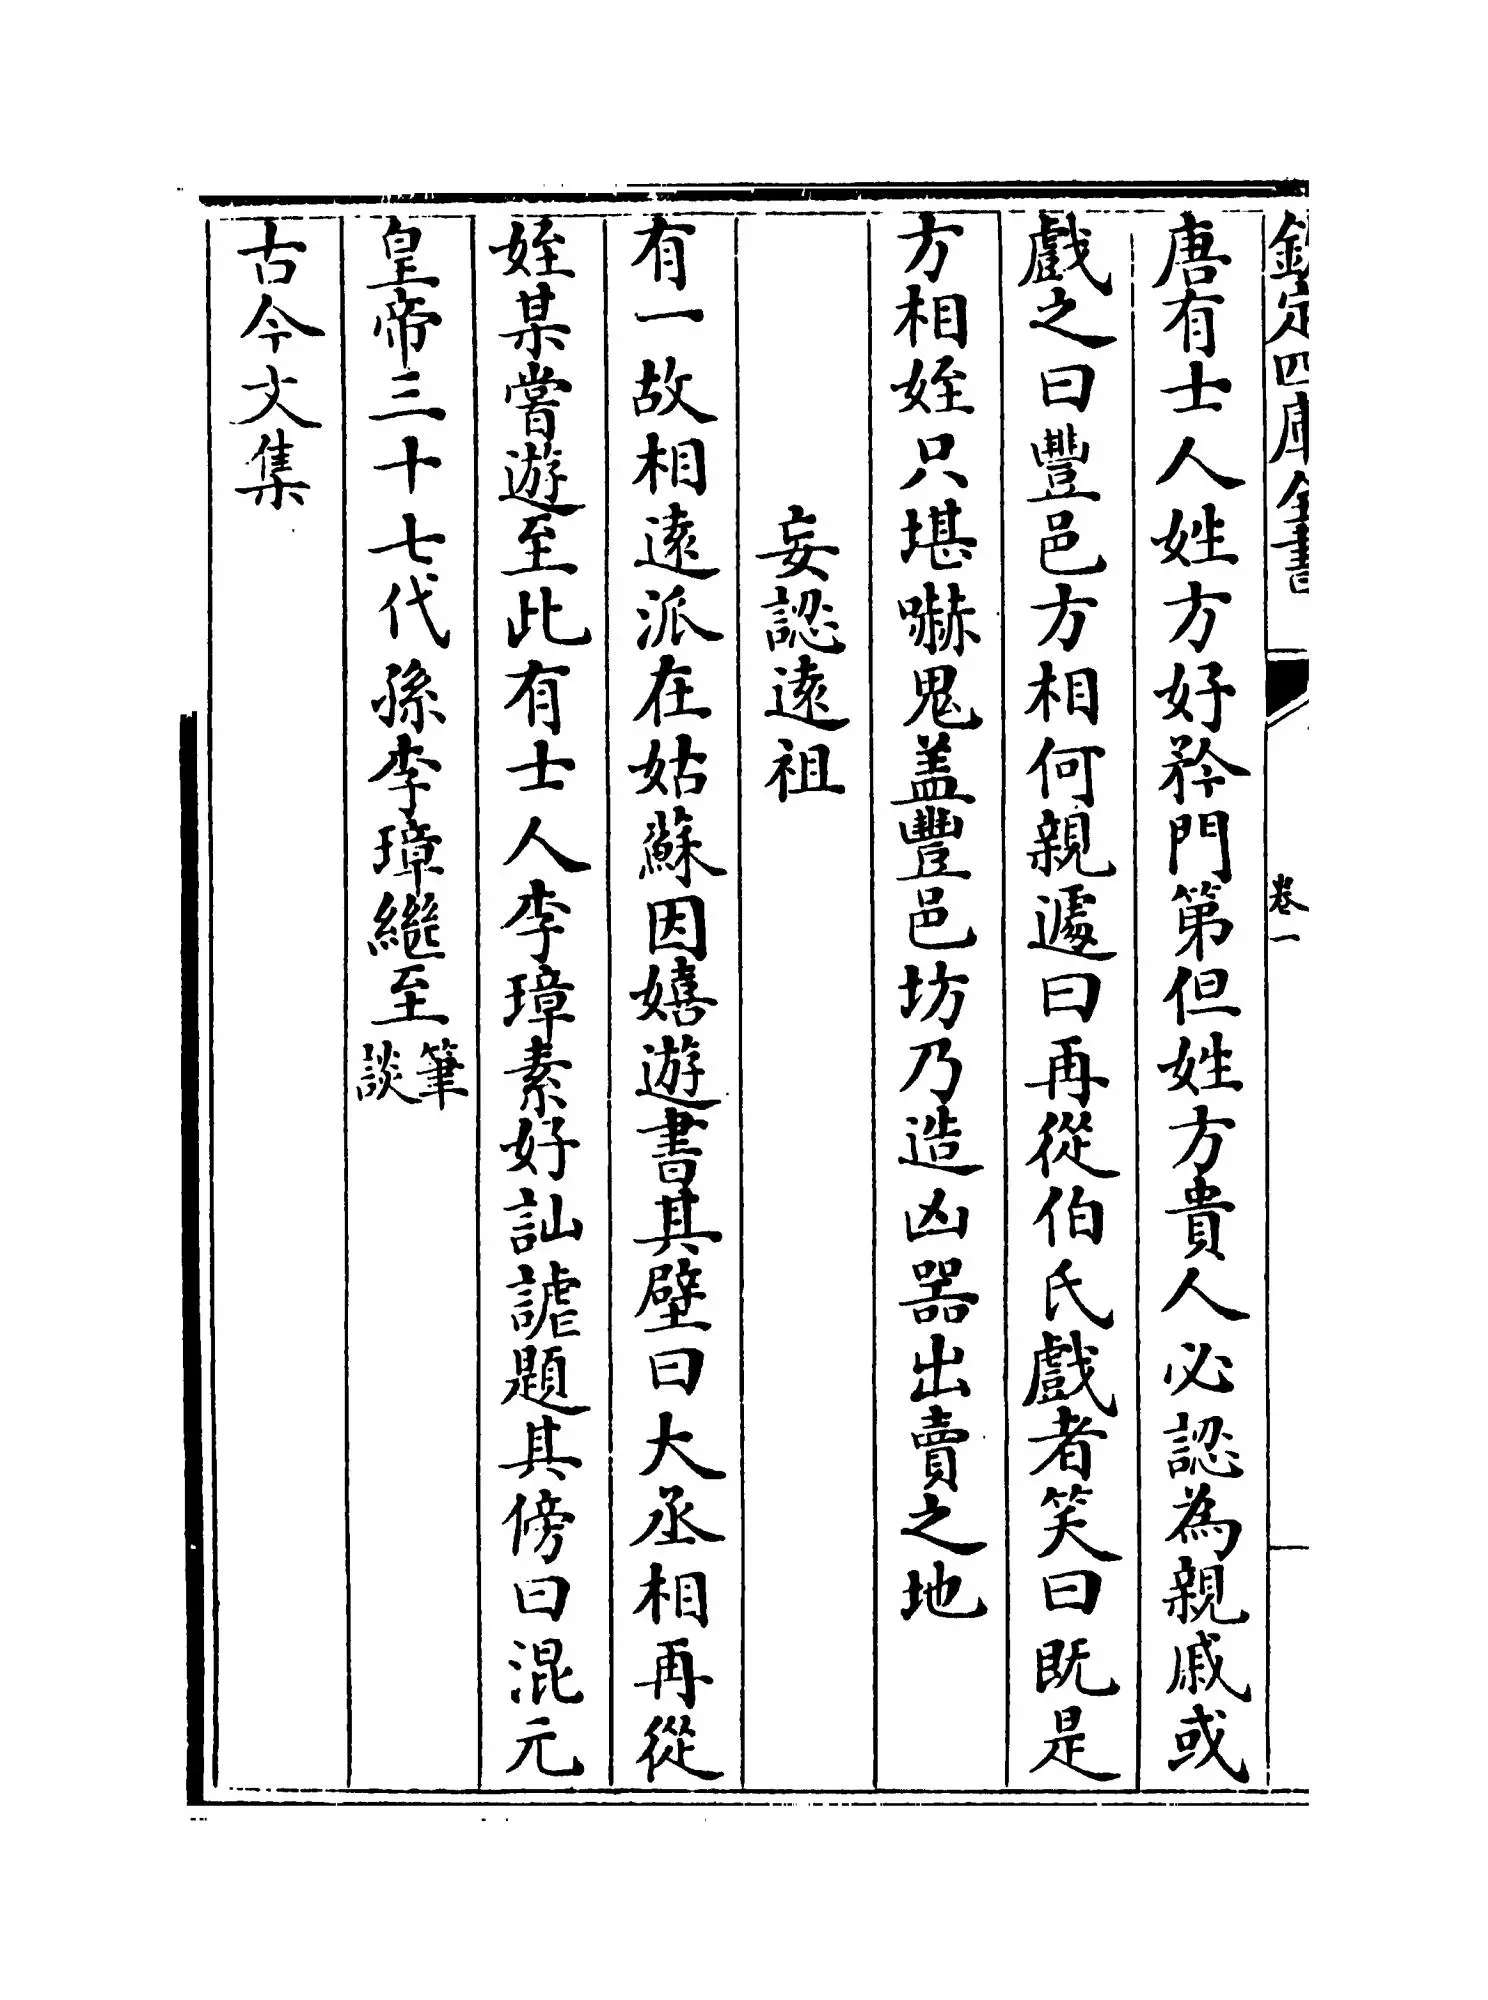 欽定四庫全書
卷一
唐有士人姓方好矜門第但姓方貴人必認為親戚或
戲之曰豐邑方相何親遽曰再從伯氏戲者笑曰既是
方相姪只堪嚇鬼盖豐邑坊乃造凶器出賣之地
妄認遠祖
有一故相遠派在姑蘇因嬉遊書其壁曰大丞相再從
姪某嘗遊至此有士人李璋素好訕謔題其傍曰混元
皇帝三十七代孫李璋繼至筆談
古今文集